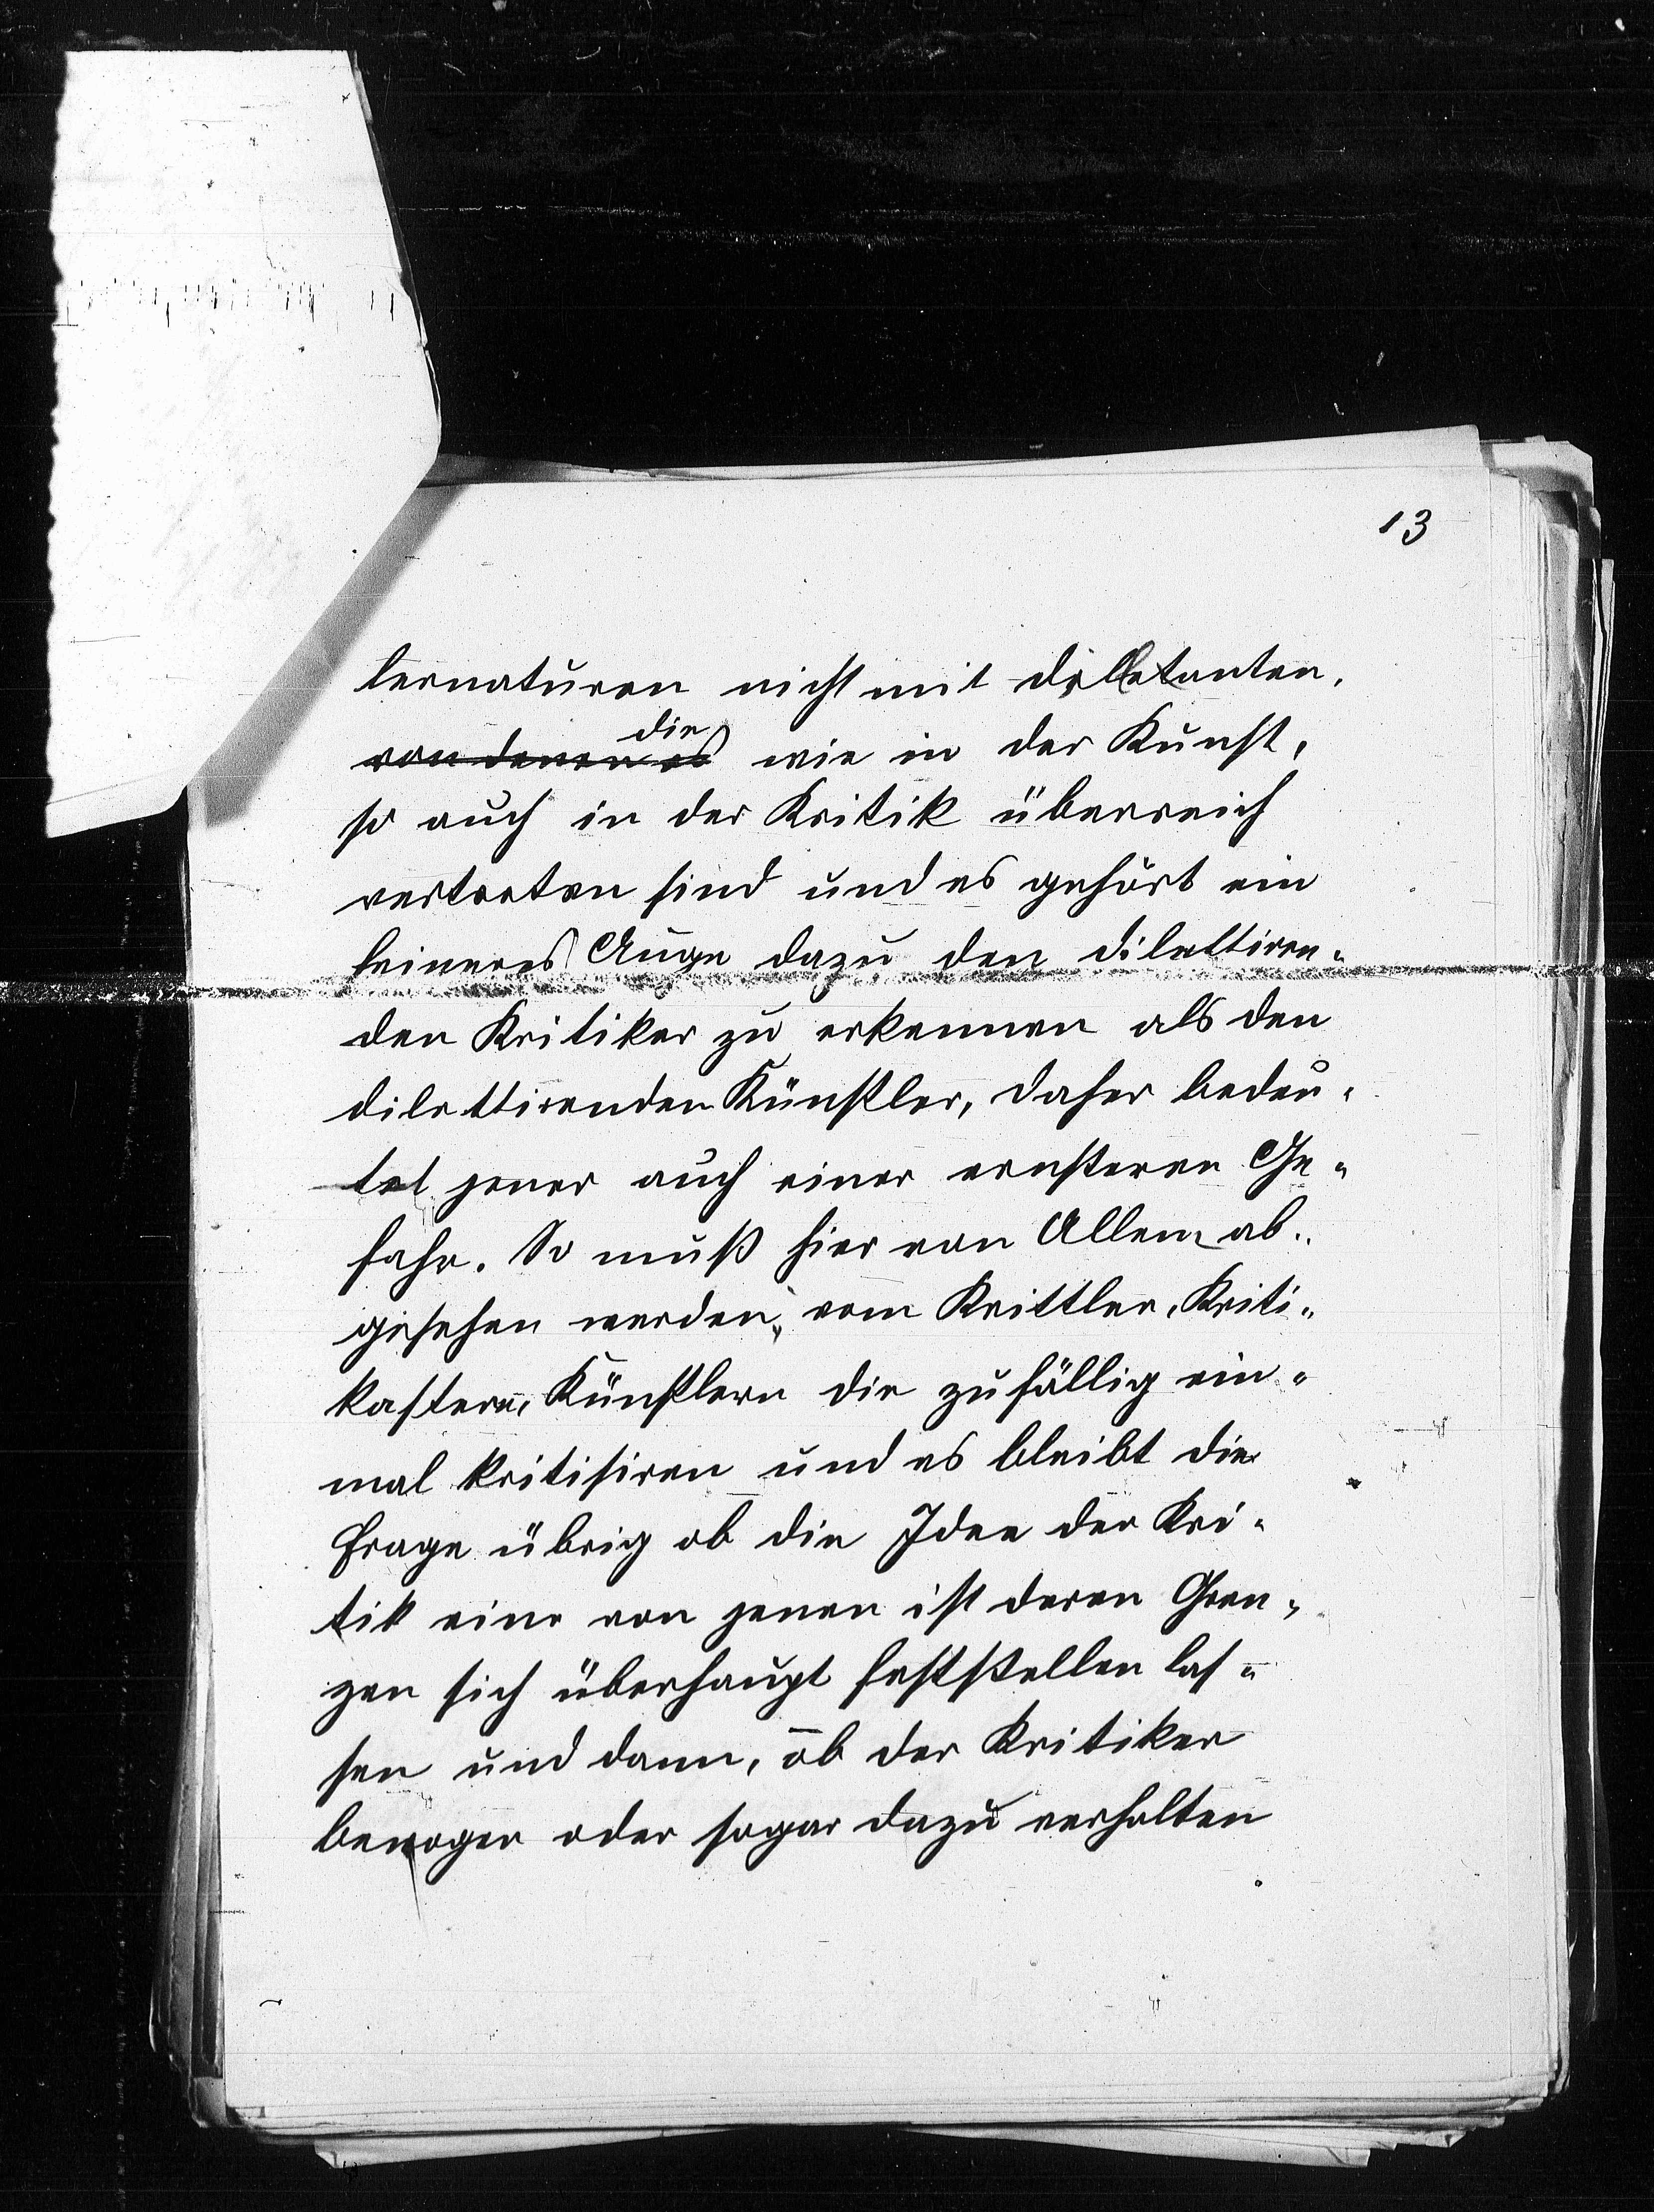 13
lernaturen nicht mit Dilletanten,
die
von denen es wie in der Kunst,
so auch in der Kritik überreich
vertreten sind und es gehört ein
feineres Auge dazu den dilettiren-
den Kritiker zu erkennen als den
dilettirenden Künstler, daher bedeu-
tet jener auch einer ernsteren Ge-
fahr. So muß hier von Allem ab-
gesehen werden, vom Krittler, Kriti-
kastern, Künstlern die zufällig ein-
mal kritisiren und es bleibt die
Frage übrig ob die Idee der Kri-
tik eine von jenen ist deren Gren-
zen sich überhaupt feststellen las-
sen und dann, ob der Kritiker
bewogen oder sogar dazu verhalten